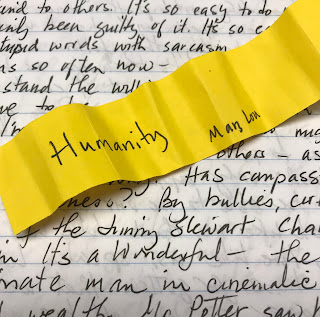 and to others. It's so easy to do
only been guilty of it. It's so c
stupid words with sarcasm
so often now—
stand the
Humanity Mary Lou
others — as
Has compass
ness? By bullies, cur
of the Jimmy Stewart Cha
in It's a Wonderful — the
nate man in cinematic
wealth. Mr. Potter saw h